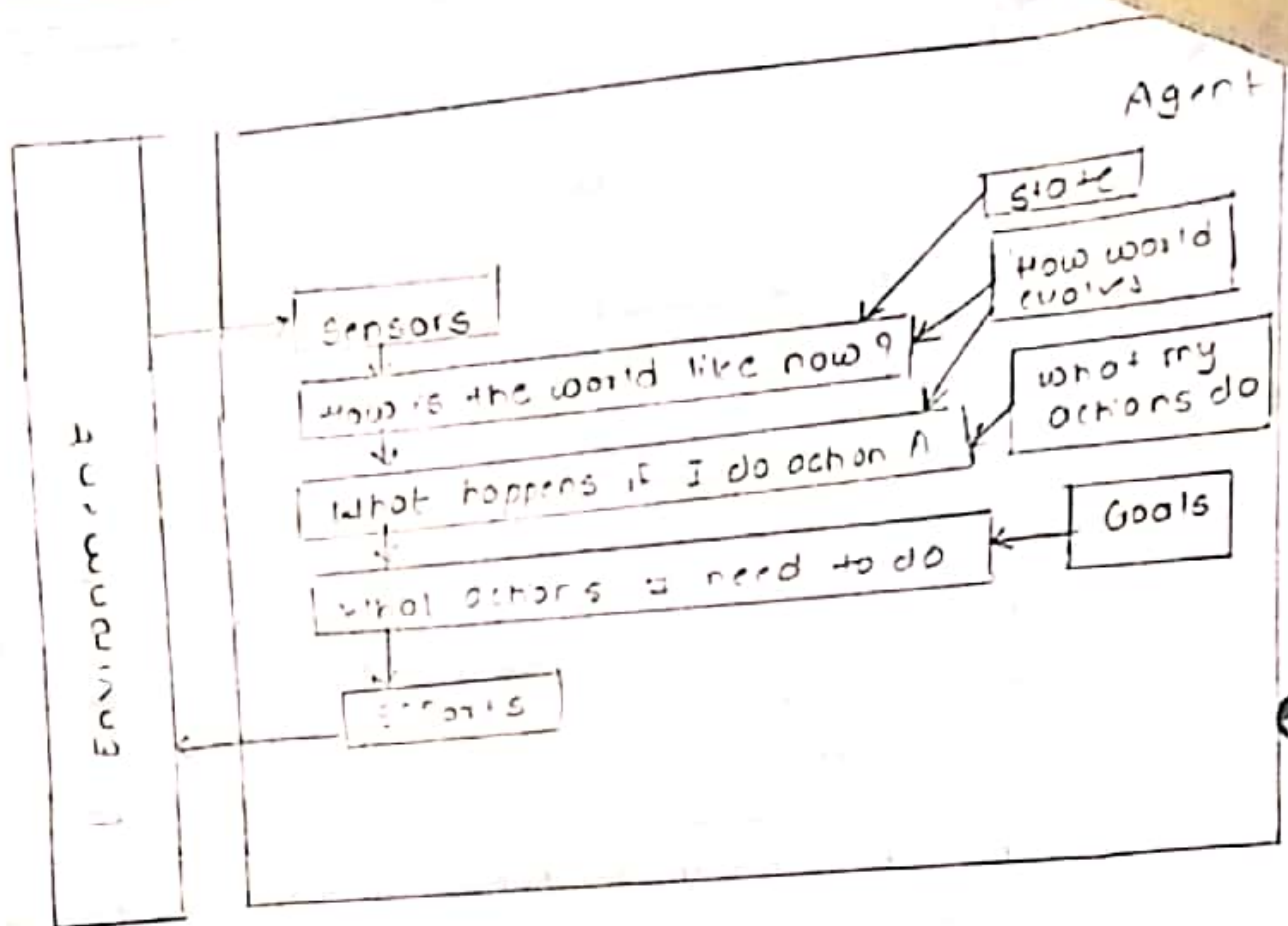 Agent
State
How world
evolves
Sensors
How is the world like now?
What my
actions do
What happens if I do action A
Goals
What actions I need to do